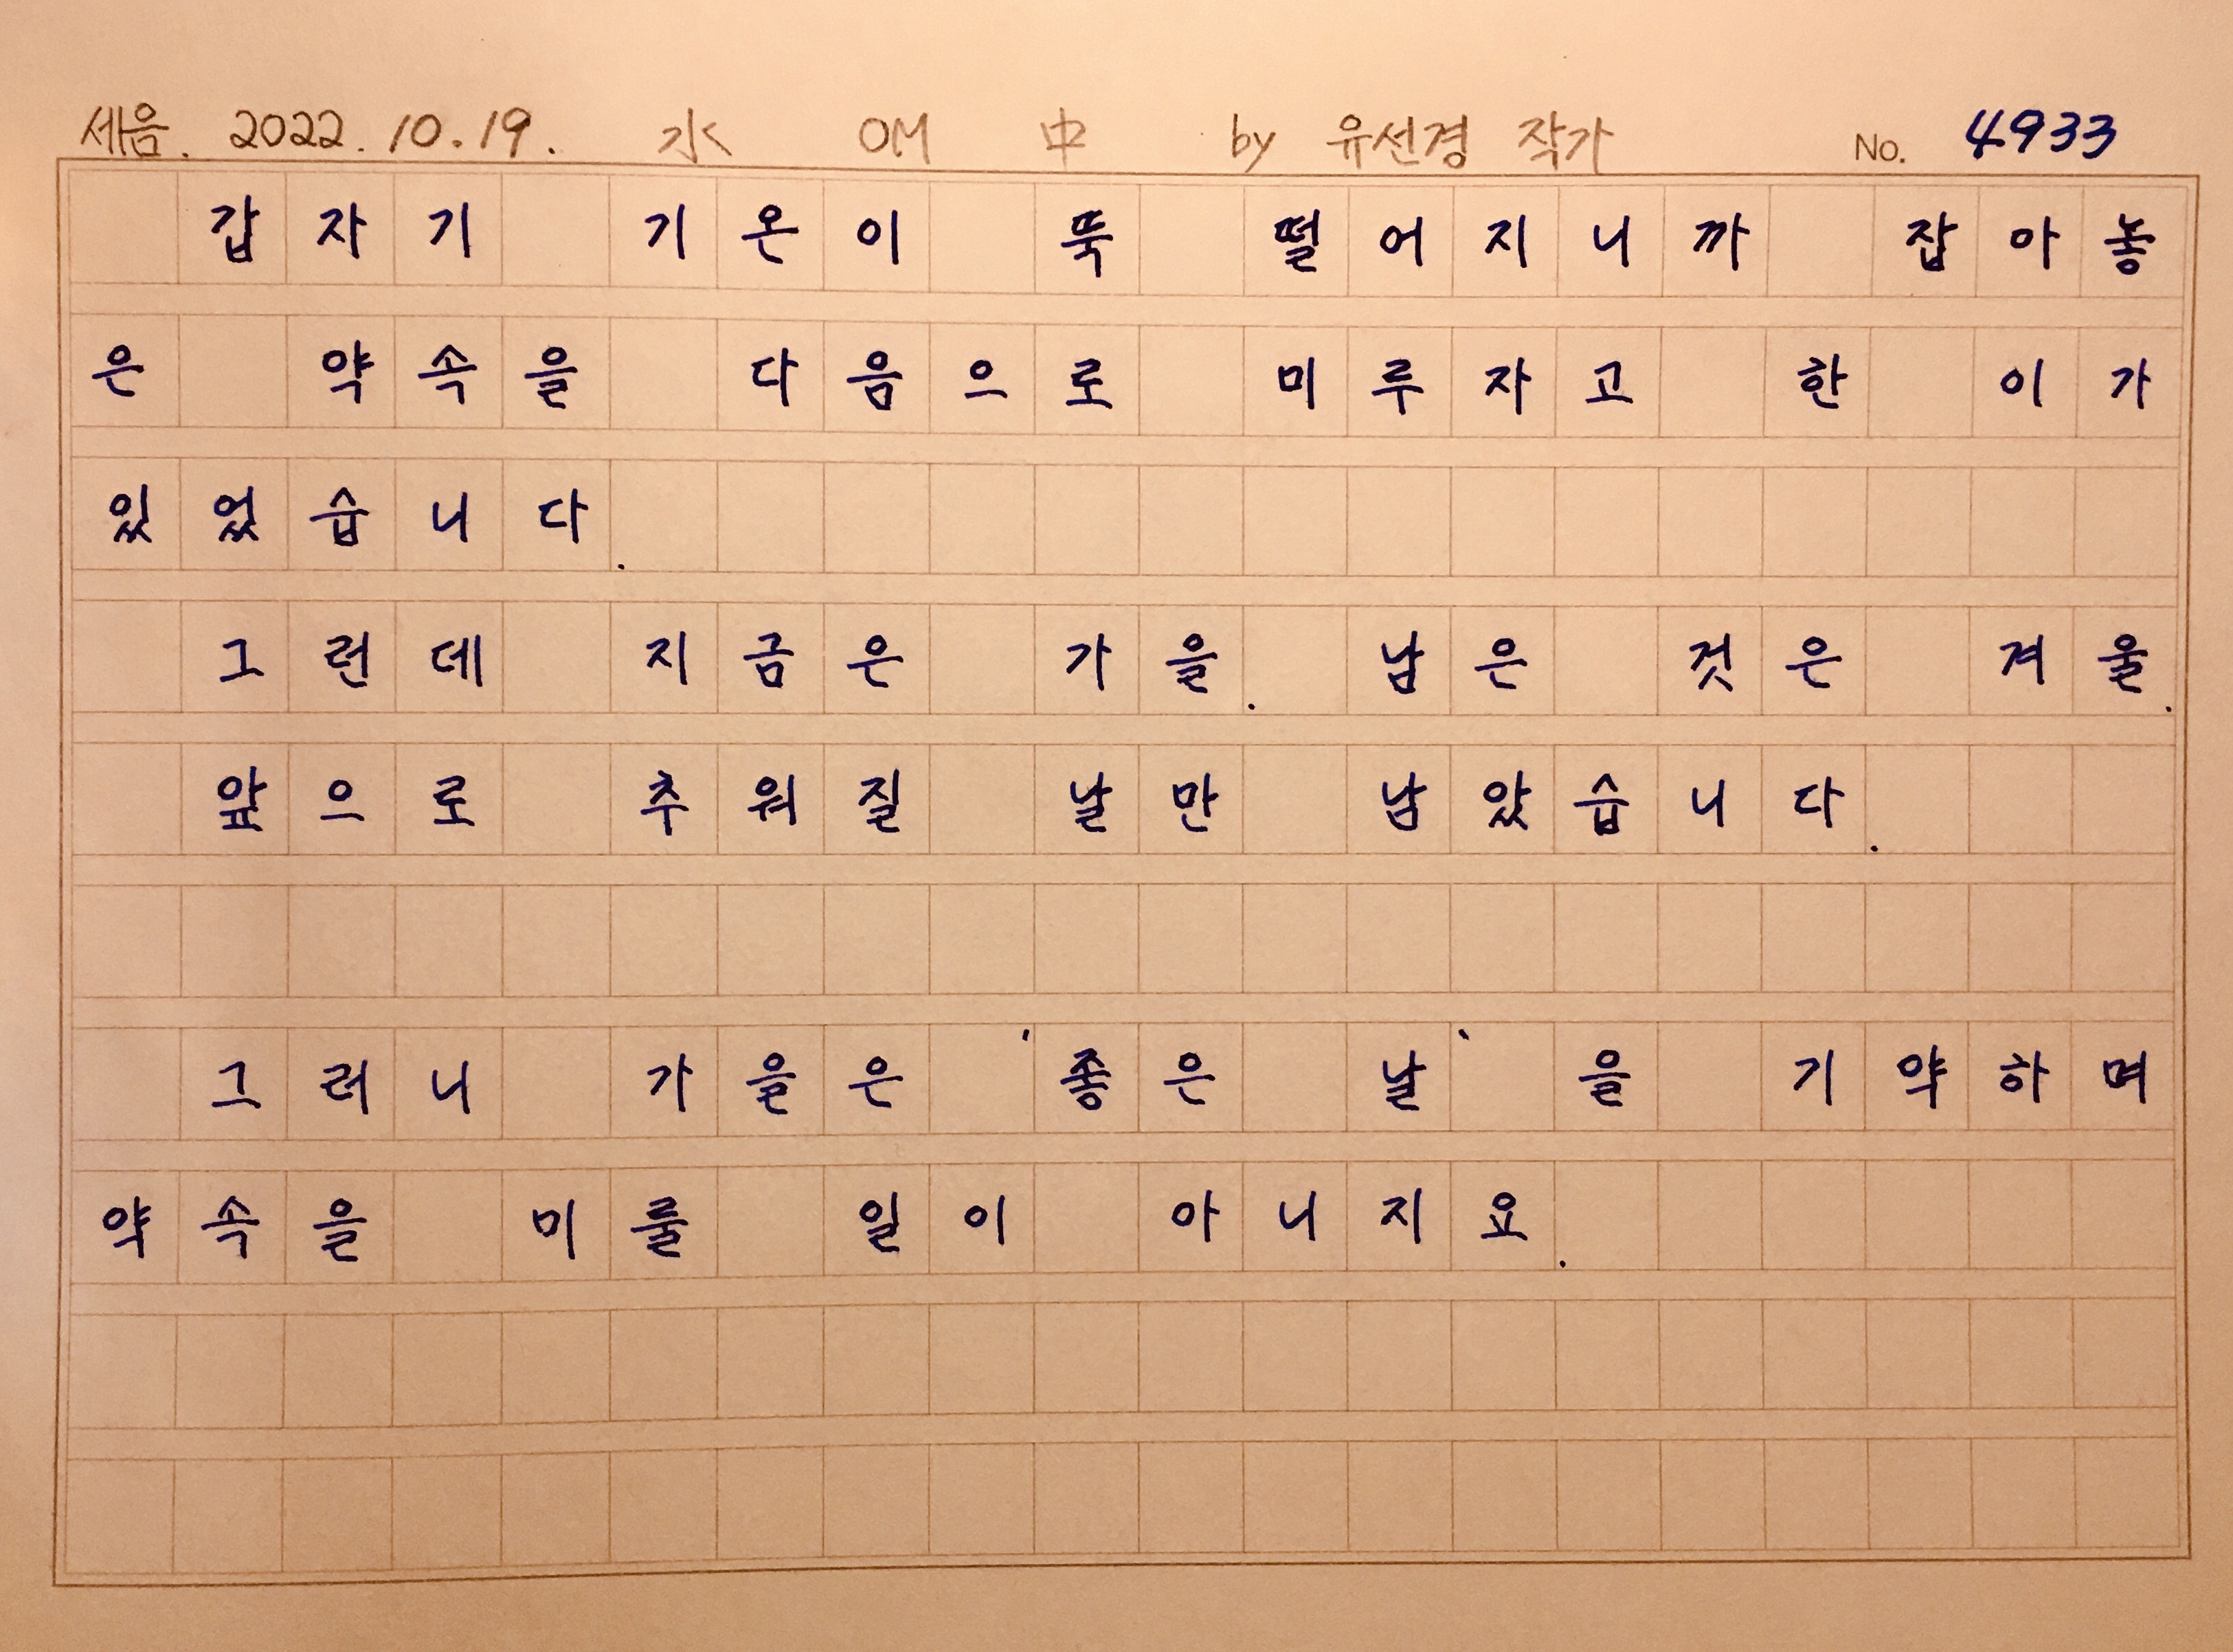 세음. 2022. 10. 19. 水 OM 中 by 유선경 작가 No. 4933
갑자기 기온이 뚝 떨어지니까 잡아놓
은 약속을 다음으로 미루자고 한 이가
있었습니다.
그런데 지금은 가을. 남은 것은 겨울.
앞으로 추워질 날만 남았습니다.
그러니 가을은 '좋은 날'을 기약하며
약속을 미룰 일이 아니지요.